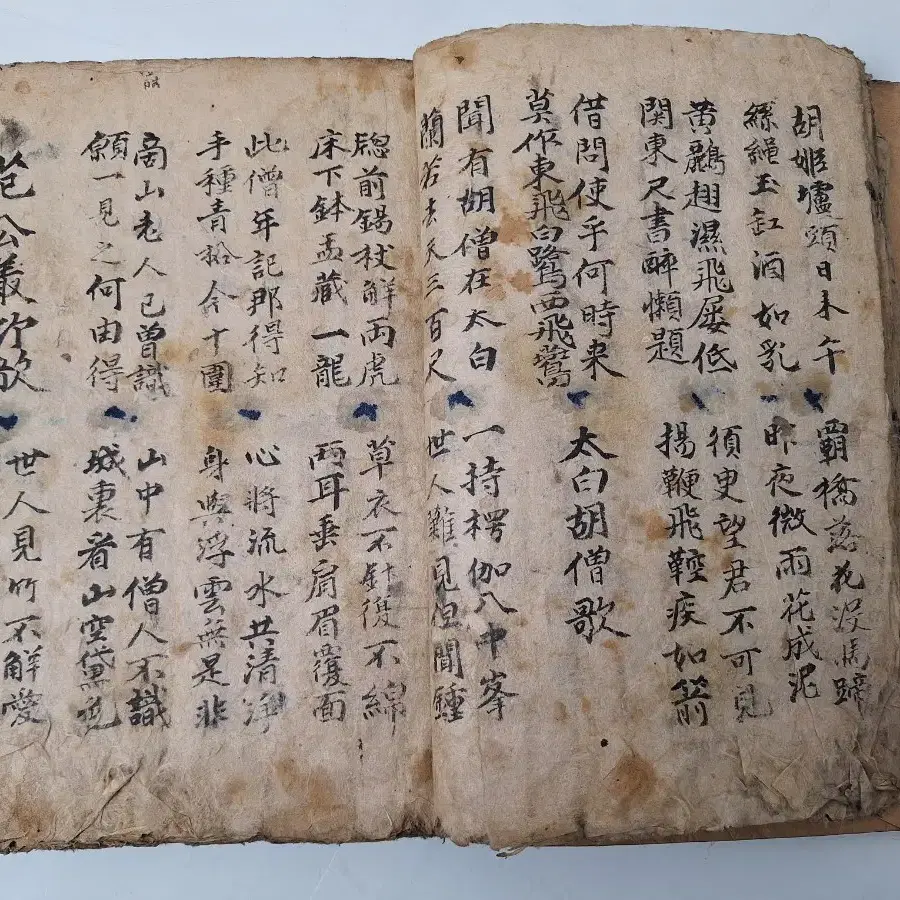 胡姬壚頭日未午
絲繩玉缸酒如乳
霸橋落花没馬蹄
昨夜微雨花成泥
黄鸝趐濕飛屢低
関東尺書醉懶題
須更望君不可見
揚鞭飛鞚疾如箭
借問使乎何時来
莫作東飛白鷺西飛鷰
太白胡僧歌
聞有胡僧在太白
蘭若去天三百尺
一持楞伽入中峯
世人難見但聞鍾
窓前錫杖解両虎
床下鉢盂藏一龍
草衣不針復不綿
両耳垂肩眉覆面
此僧年記那得知
手種青松今十圍
心將流水共清净
身與浮雲無是非
商山老人已曾識
願一見之何由得
山中有僧人不識
城裏看山空黛色
范公叢竹歌
世人見竹不解愛